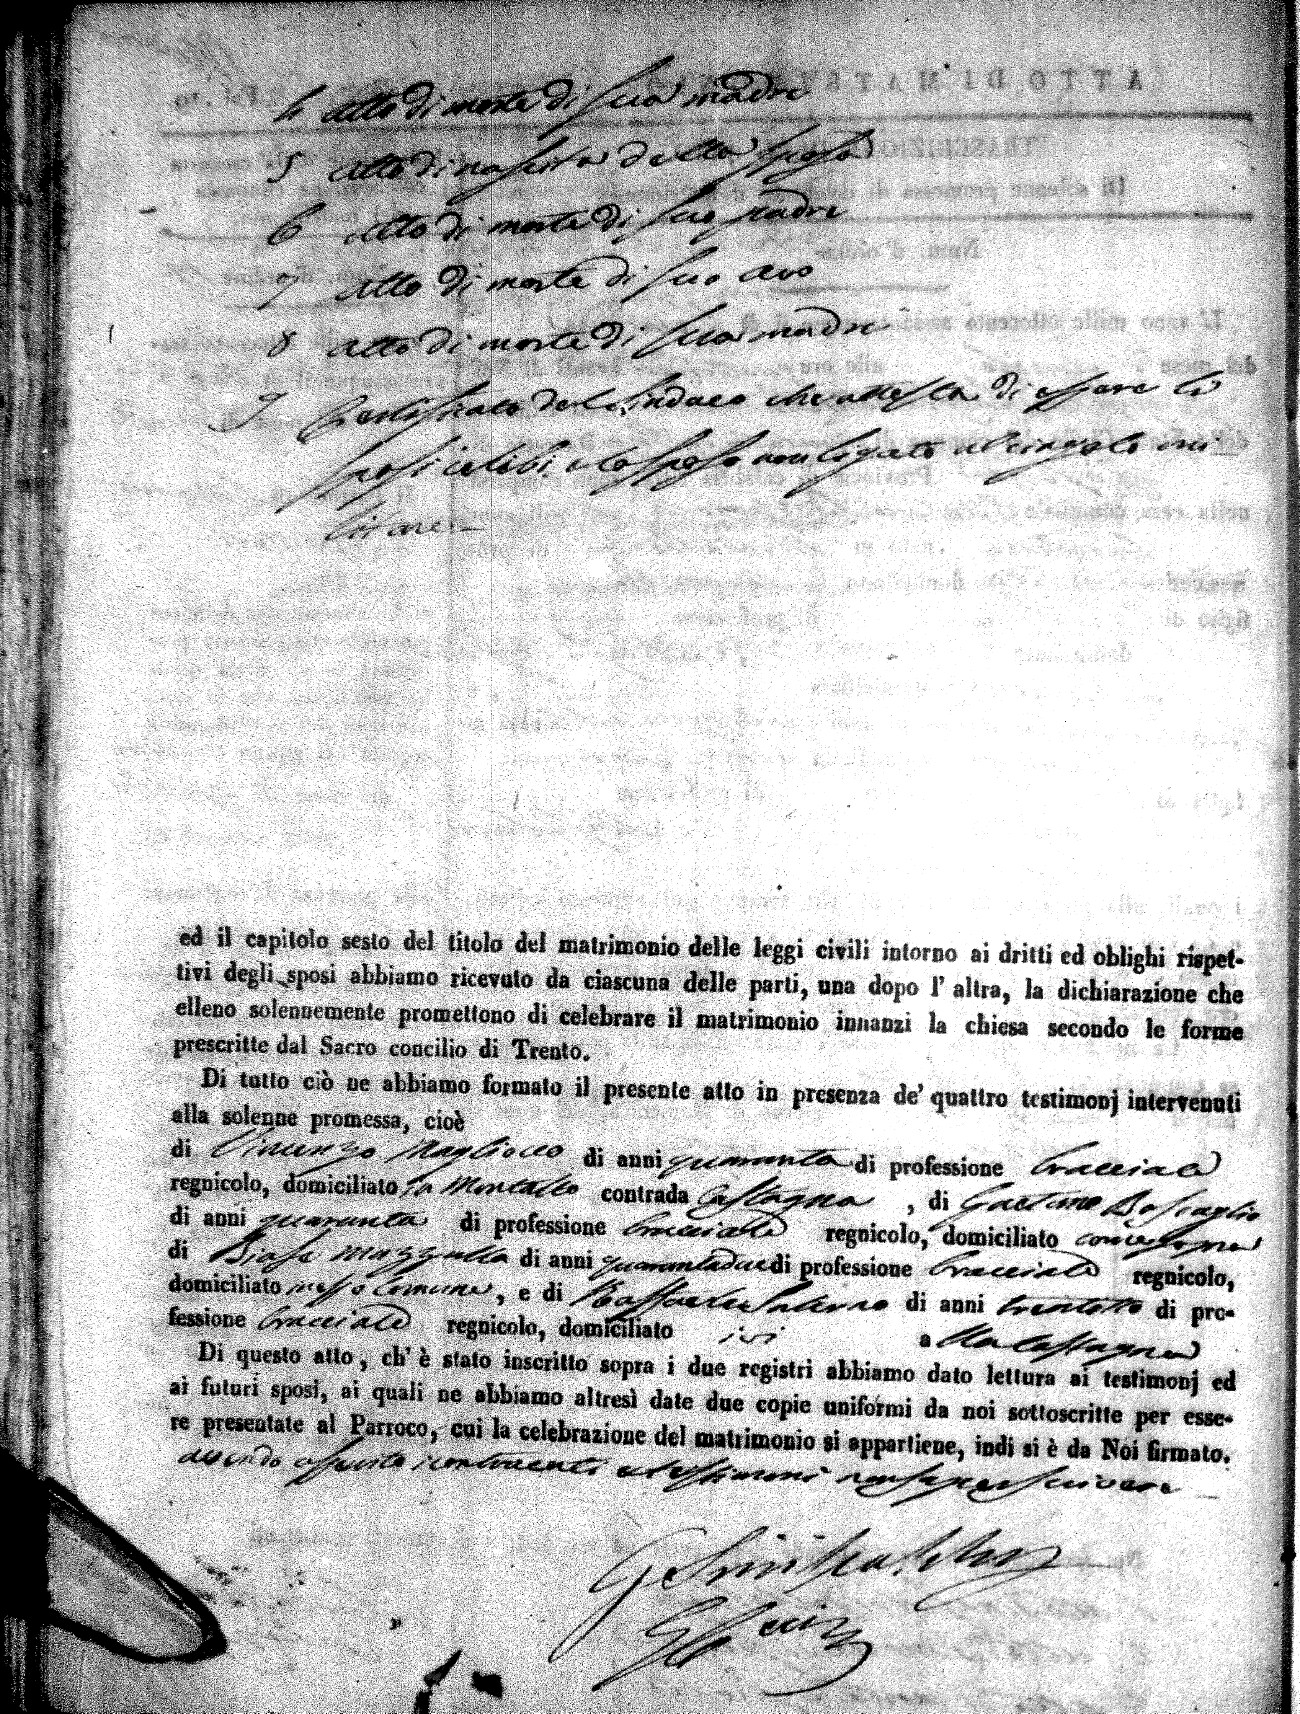 4 atto di morte di sua madre
5 atto di nascita della sposa
6 atto di morte di suo padre
7 atto di morte di suo avo
8 atto di morte di sua madre
9 Certificato del Sindaco che attesta di essere li
sposi celibi e lo sposo non legato al cingolo mi
litare
ed il capitolo sesto del titolo del matrimonio delle leggi civili intorno ai dritti ed oblighi rispet-
tivi degli sposi abbiamo ricevuto da ciascuna delle parti, una dopo l' altra, la dichiarazione che
elleno solennemente promettono di celebrare il matrimonio innanzi la chiesa secondo le forme
prescritte dal Sacro concilio di Trento.
Di tutto ciò ne abbiamo formato il presente atto in presenza de' quattro testimonj intervenuti
alla solenne promessa, cioè
di Vincenzo Magliocco di anni quaranta di professione bracciale
regnicolo, domiciliato in Montalto contrada Castagna , di Gaetano
di anni quaranta di professione bracciale regnicolo, domiciliato
di Biase Mazzulla di anni quarantadue di professione bracciale regnicolo,
domiciliato nesso Comune, e di Raffaele Salerno di anni trentotto di pro-
fessione bracciale regnicolo, domiciliato ivi a lla Castagna
Di questo atto, ch' è stato inscritto sopra i due registri abbiamo dato lettura ai testimonj ed
ai futuri sposi, ai quali ne abbiamo altresì date due copie uniformi da noi sottoscritte per esse-
re presentate al Parroco, cui la celebrazione del matrimonio si appartiene, indi si è da Noi firmato.
avendo asserito i contraenti e testimoni non saper scrivere